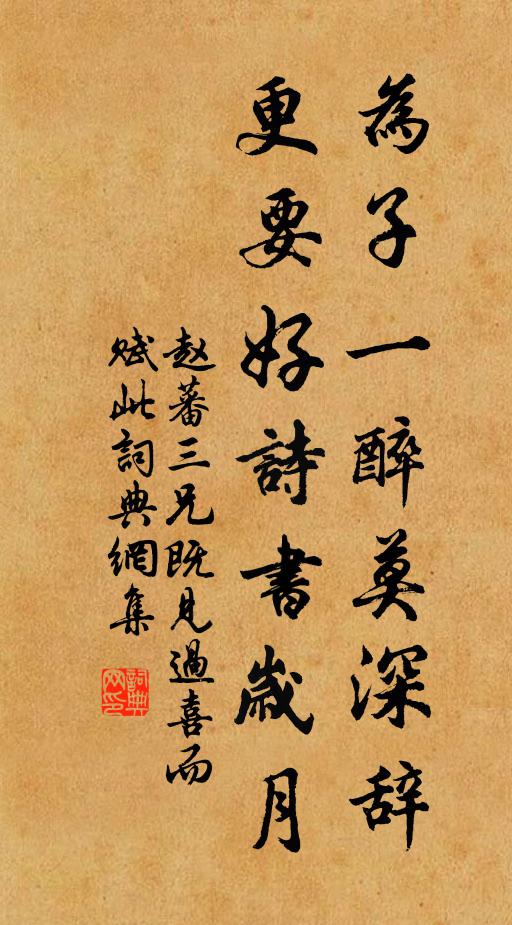 為子一醉莫深辞
更要好詩書歳月
赵蕃三兄既見過喜而
赋此詞典網集
詞典网印